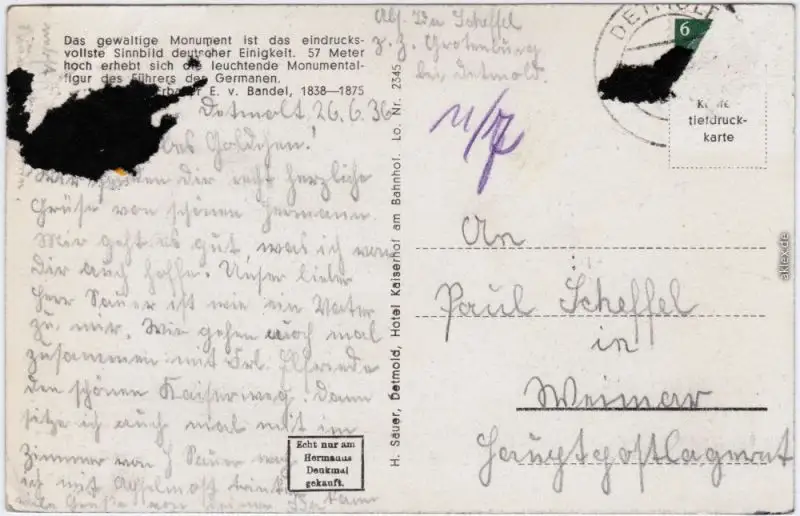 Das gewaltige Monument ist das eindrucks-
vollste Sinnbild deutscher Einigkeit. 57 Meter
hoch erhebt sich die leuchtende Monumental-
figur des Führers der Germanen.
Erbauer E. v. Bandel, 1838—1875
Detmold, 26.6.36
Goldchen!
Wir senden dir recht herzliche
Grüße von schönen Hermann.
Mir geht es gut, was ich von
Dir auch hoffe. Unser lieber
Herr Sauer ist wie ein Vater
zu mir. Wir gehen auch mal
zusammen mit Frl. Elfriede
den schönen Kaiserweg. Dann
sitze ich auch mal mit im
Zimmer von H Sauer
ich mit Apfelmost
viele Grüße von
Echt nur am
Hermanns
Denkmal
gekauft.
H. Sauer, Detmold, Hotel Kaiserhof am Bahnhof. Lo. Nr. 2345
Abs. Scheffel
z. Z. Grotenburg
bei Detmold.
DETMOLD
6
tiefdruck-
karte
An
Paul Scheffel
in
Weimar
Hauptpostlagernd
aklex.de